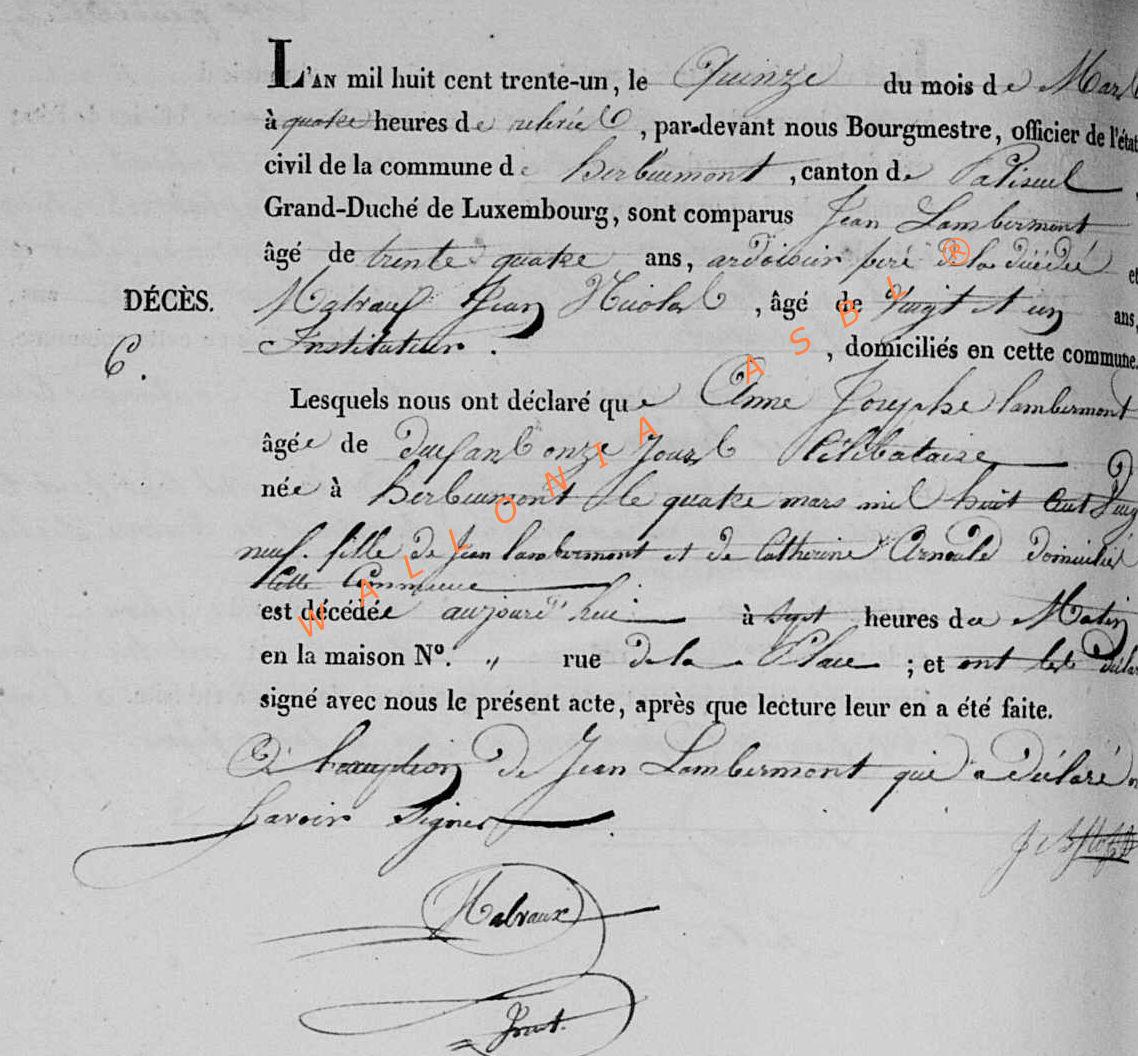 L'AN mil huit cent trente-un, le Quinze du mois de Mars
à quatre heures de relevée, par-devant nous Bourgmestre, officier de l'état
civil de la commune de herbeumont, canton de Paliseul,
Grand-Duché de Luxembourg, sont comparus Jean Lambermont
âgé de trente quatre ans, ardoisier père de la décédée et
DÉCÈS. Malvaux Jean Nicolas, âgé de Vingt et un ans,
6. Instituteur. , domiciliés en cette commune.
Lesquels nous ont déclaré que Anne Josephe lambermont
âgée de deux ans onze jours Célibataire
née à herbeumont le quatre mars mil huit Cent Ving
neuf. fille de Jean lambermont et de Catherine Arnould domiciliés
Cette Commune
est décédée aujourd'hui à sept heures du Matin
en la maison N°. „ rue De la Place ; et ont les décla
signé avec nous le présent acte, après que lecture leur en a été faite.
De Jean Lambermont qui a déclaré n
Savoir Signer
Malvaux
WALLONIA ASBL ®